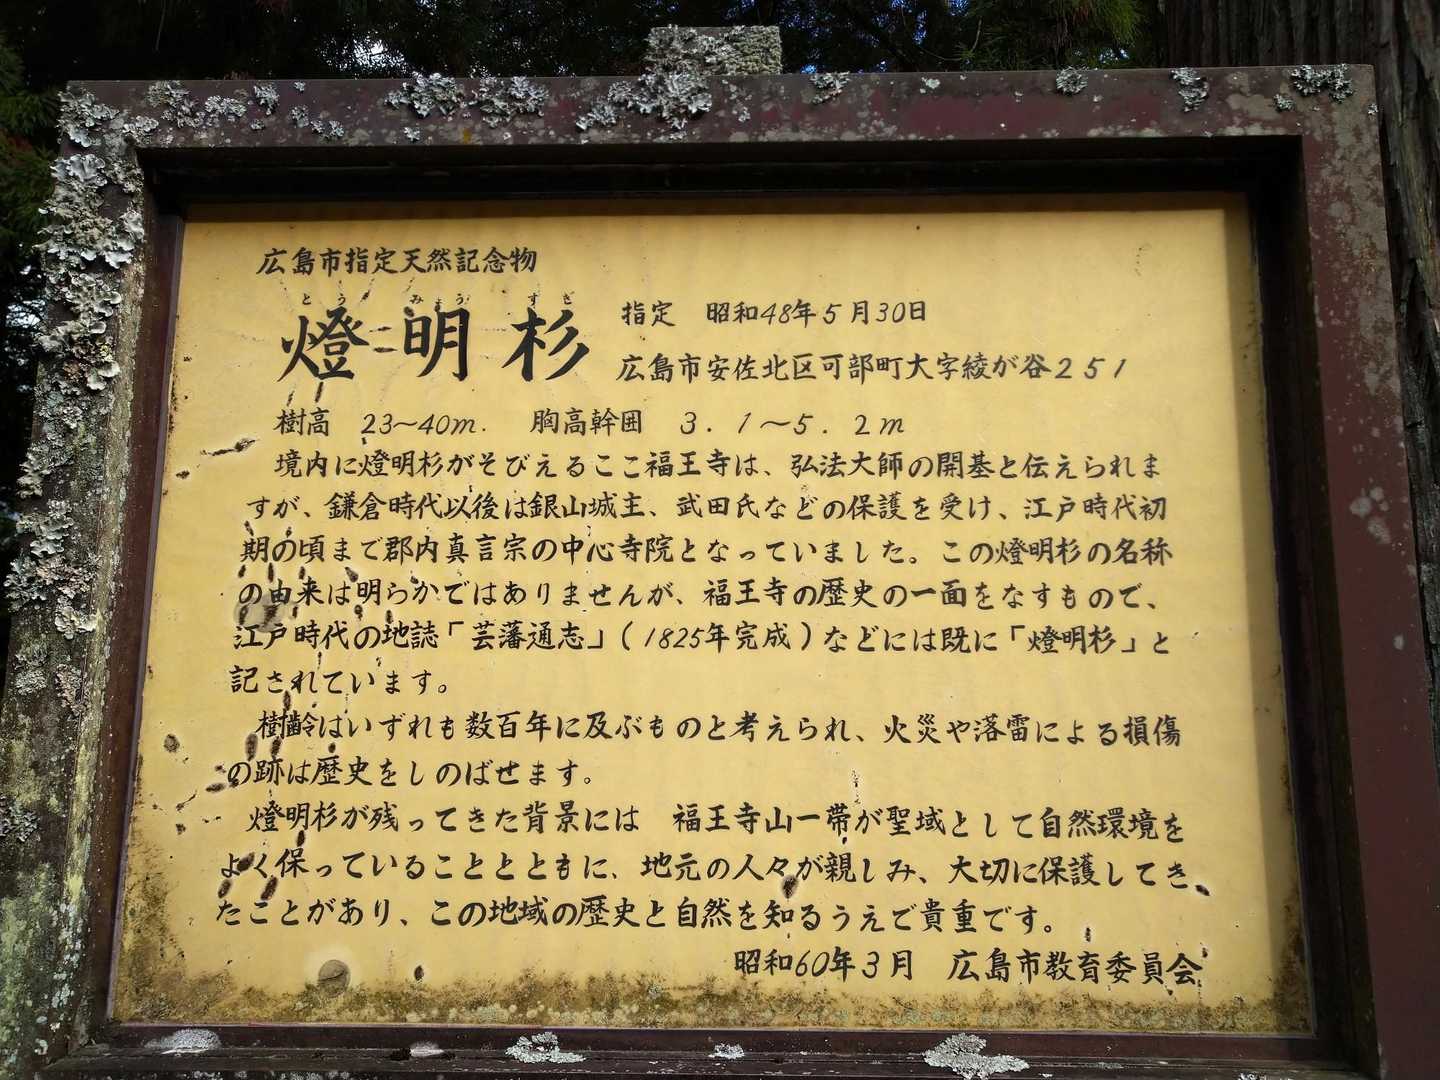 広島市指定天然記念物
とうみょうすぎ
燈明杉
指定　昭和48年5月30日
広島市安佐北区可部町大字綾が谷251
樹高　23～40m.　胸高幹囲　3.1～5.2m
境内に燈明杉がそびえるここ福王寺は、弘法大師の開基と伝えられま
すが、鎌倉時代以後は銀山城主、武田氏などの保護を受け、江戸時代初
期の頃まで郡内真言宗の中心寺院となっていました。この燈明杉の名称
の由来は明らかではありませんが、福王寺の歴史の一面をなすもので、
江戸時代の地誌「芸藩通志」(1825年完成)などには既に「燈明杉」と
記されています。
樹齢はいずれも数百年に及ぶものと考えられ、火災や落雷による損傷
の跡は歴史をしのばせます。
燈明杉が残ってきた背景には　福王寺山一帯が聖域として自然環境を
よく保っていることとともに、地元の人々が親しみ、大切に保護してき
たことがあり、この地域の歴史と自然を知るうえで貴重です。
昭和60年3月　広島市教育委員会